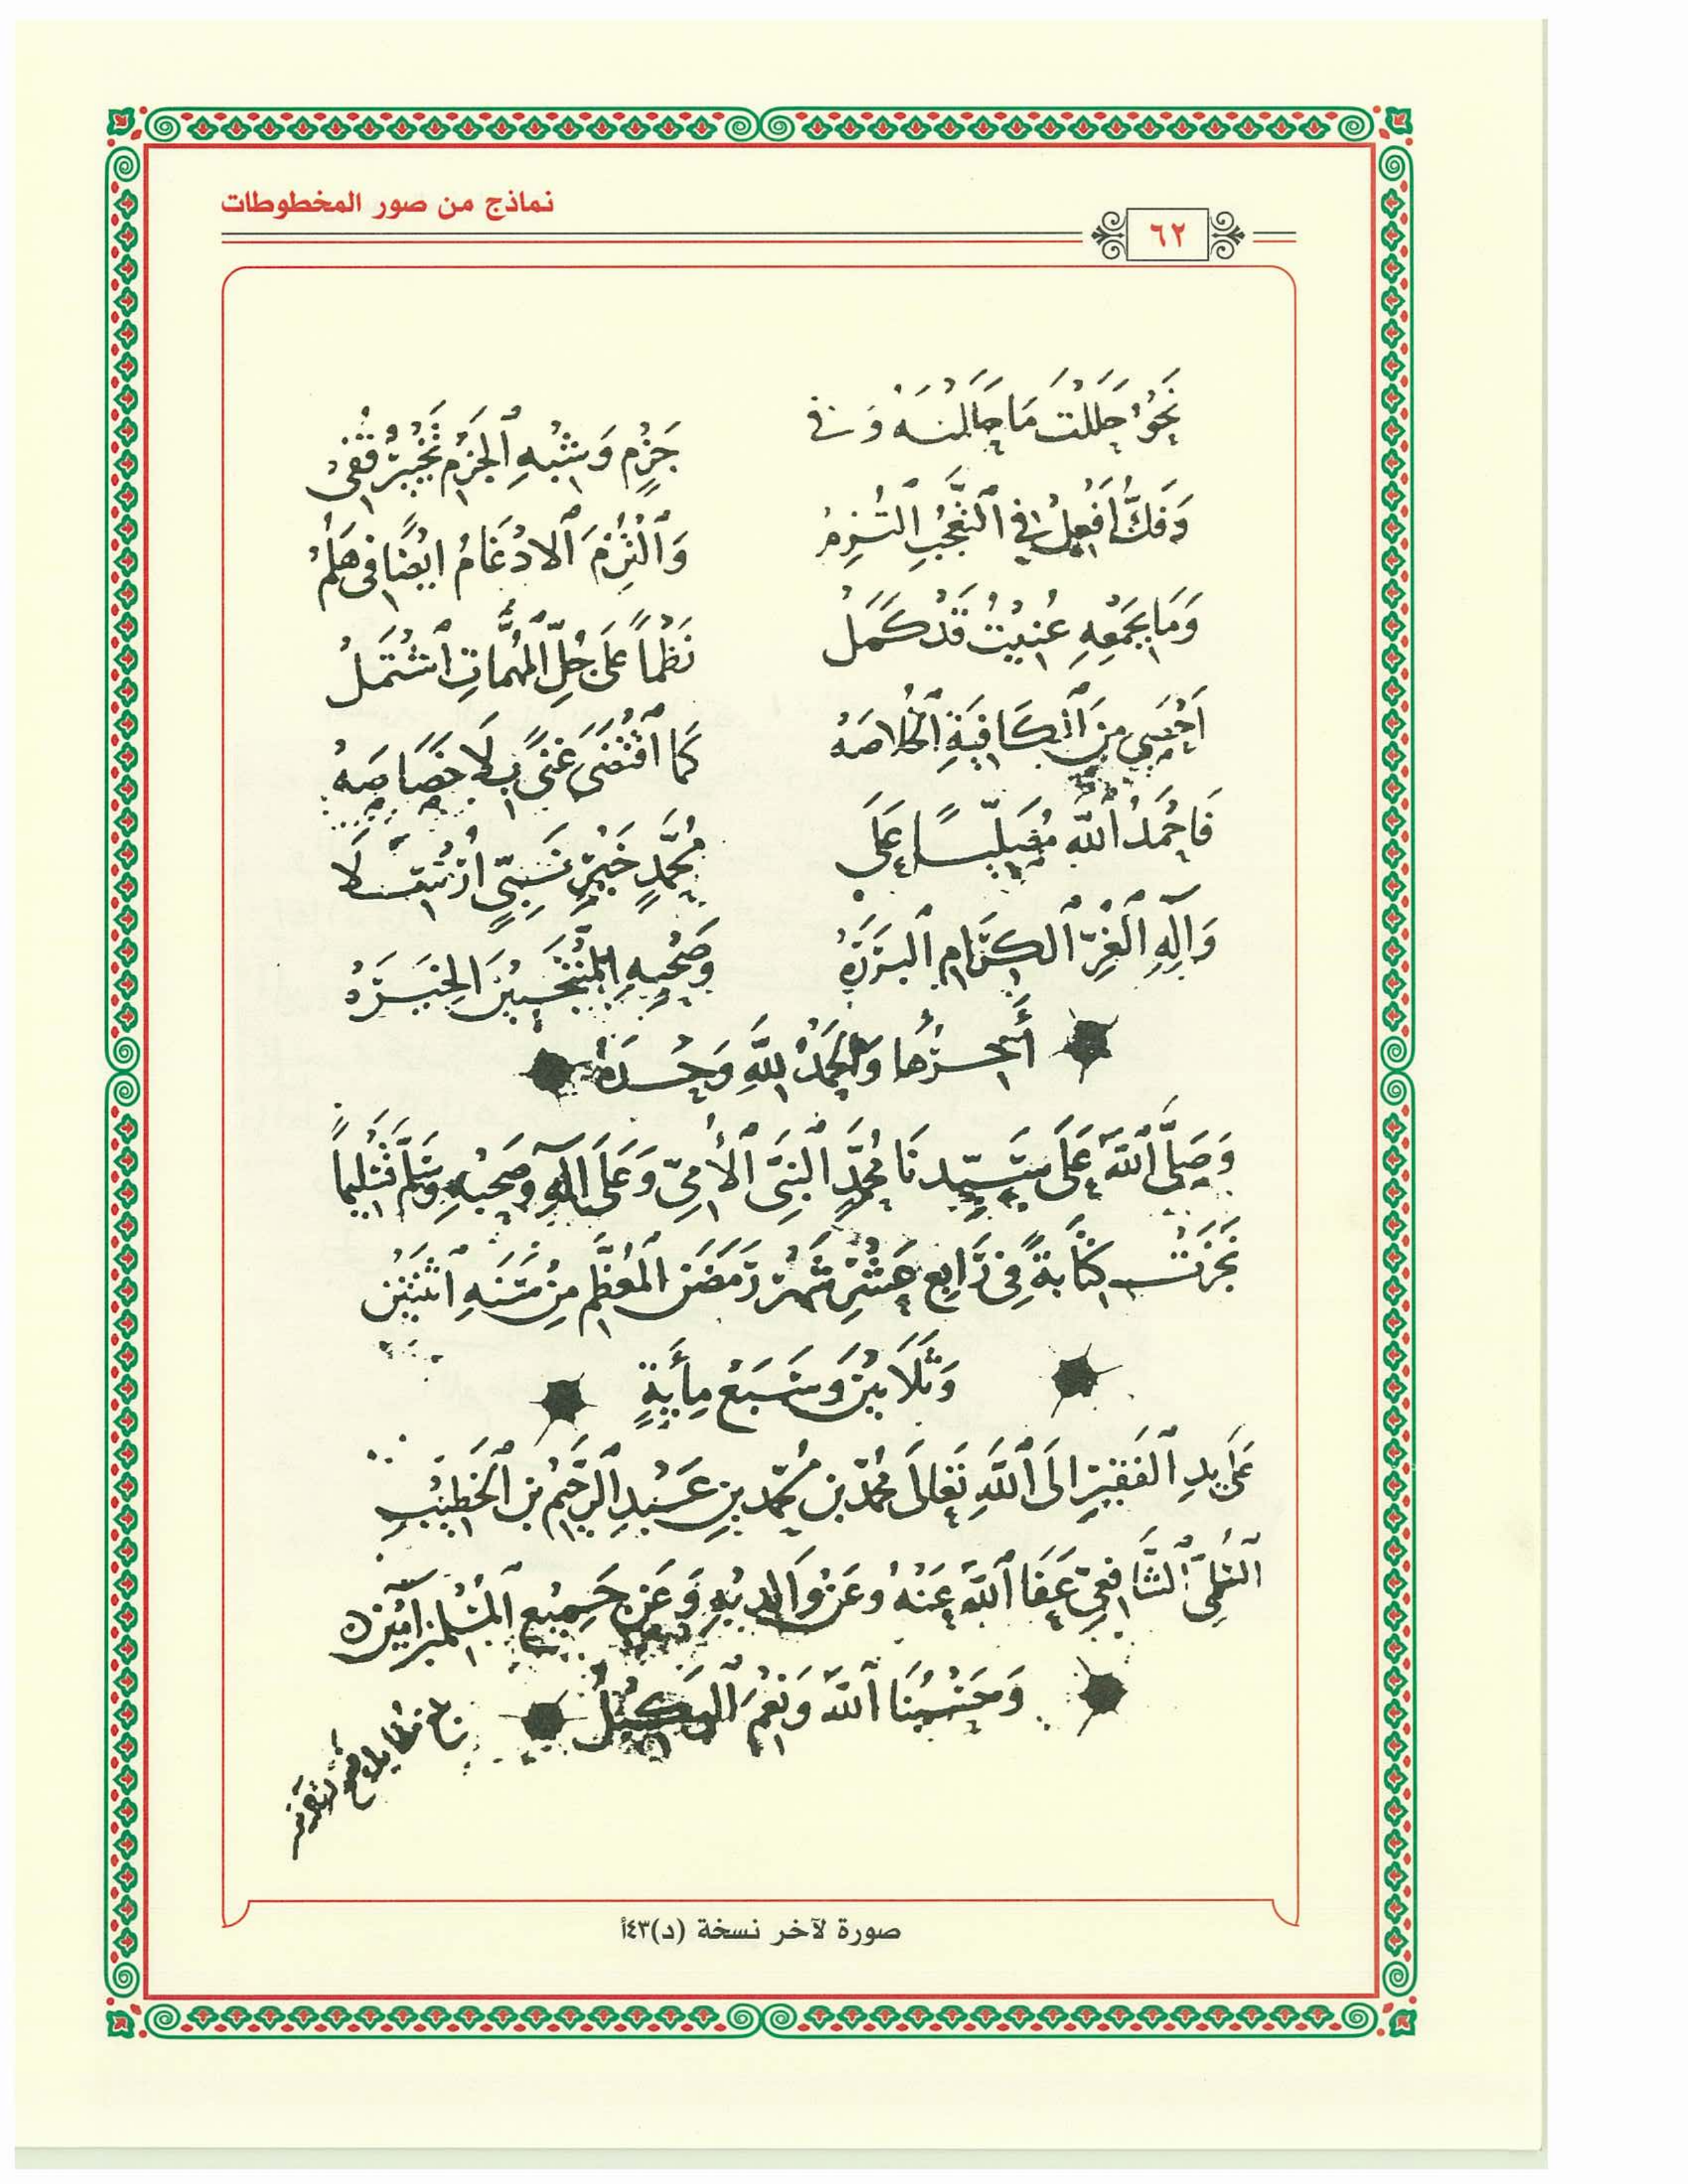 نماذج من صور المخطوطات
٦٢
نَحْوُ حَلَلْتُ مَا حَلَلْنَهُ وَفِي جَزْمٍ وَشِبْهِ ٱلْجَزْمِ تَخْيِيرٌ قُفِي
وَفَكُّ أَفْعِلْ فِي ٱلتَّعَجُّبِ ٱلْتُزِمْ وَٱلْتُزِمَ ٱلادْغَامُ ايْضًا فِي هَلُمْ
وَمَا بِجَمْعِهِ عُنِيتُ قَدْ كَمَلْ نَظْماً عَلَى جُلِّ ٱلْمُهِمَّاتِ ٱشْتَمَلْ
أَحْصَى مِنَ ٱلْكَافِيَةِ ٱلْخُلاصَهْ كَمَا ٱقْتَضَى غِنًى بِلَا خَصَاصَهْ
فَاحْمَدُ ٱللَّهَ مُصَلِّيًا عَلَى مُحَمَّدٍ خَيْرِ نَبِيٍّ أُرْسِلَا
وَآلِهِ ٱلْغُرِّ ٱلْكِرَامِ ٱلْبَرَرَهْ وَصَحْبِهِ ٱلْمُنْتَخَبِينَ ٱلْخِيَرَهْ
وَٱلْحَمْدُ لِلَّهِ وَحْدَهُ
وَصَلَّى ٱللَّهُ عَلَى سَيِّدِنَا مُحَمَّدٍ ٱلنَّبِيِّ ٱلْأُمِّيِّ وَعَلَى آلِهِ وَصَحْبِهِ وَسَلَّمَ تَسْلِيماً
نَجَزَتْ كِتَابَةً فِي رَابِعِ عَشْرِ شَهْرِ رَمَضَنَ ٱلْمُعَظَّمِ مِنْ سَنَهِ ٱثْنَتَيْنِ
وَثَلَاثِينَ وَسَبْعِ مِأَيَةٍ
عَلَى يَدِ ٱلْفَقِيرِ الَى ٱللَّهِ تَعَالَى مُحَمَّدِ بْنِ مُحَمَّدِ بْنِ عَبْدِ ٱلرَّحِيمِ بْنِ ٱلْخَطِيبِ
ٱلشَّافِعِيِّ عَفَا ٱللَّهُ عَنْهُ وَعَنْ وَالِدَيْهِ وَعَنْ جَمِيعِ ٱلْمُسْلِمِينَ آمِينَ
وَحَسْبُنَا ٱللَّهُ وَنِعْمَ ٱلْوَكِيلُ
صورة لآخر نسخة (د)٤٣أ